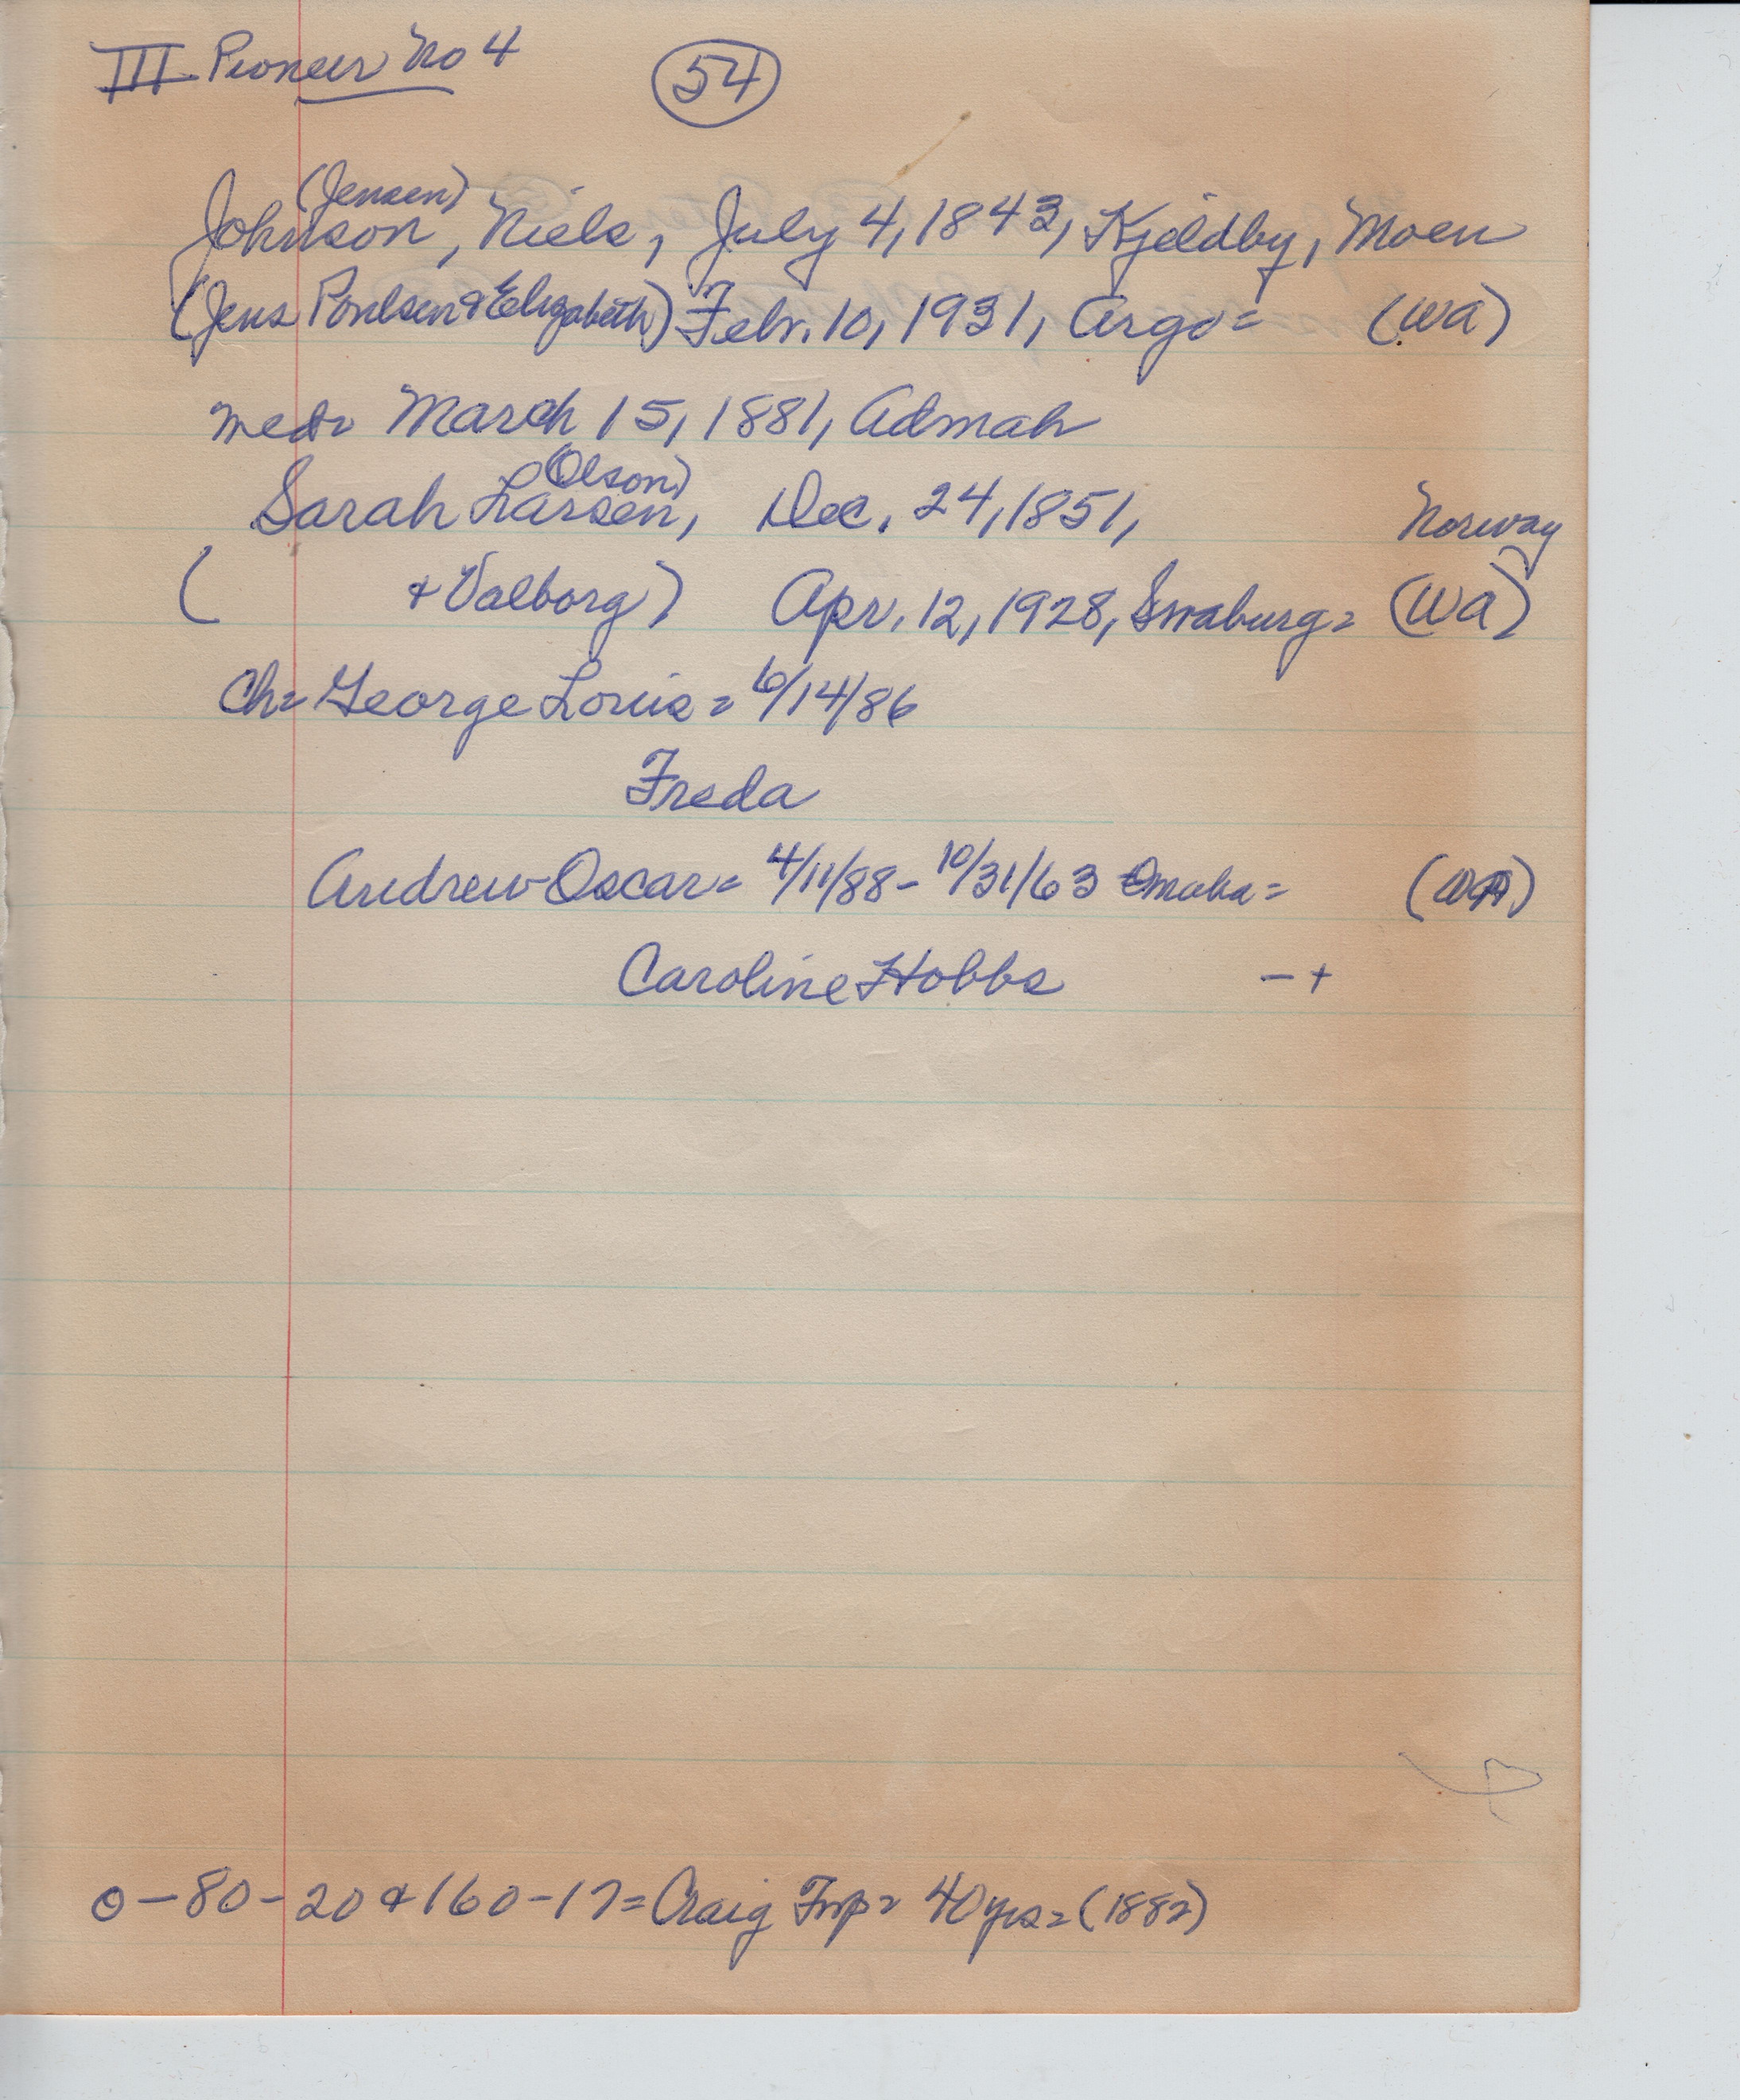 III Pioneer No 4 54
(Jensen)
Johnson, Niels, July 4, 1843, Kjeldby, Moen
(Jens Poulsen & Elizabeth) Febr. 10, 1931, Argo = (WA)
med = March 15, 1881, Admah
(Olson)
Sarah Larsen, Dec. 24, 1851, Norway
( & Valborg) Apr. 12, 1928, Swaburg = (WA)
Ch = George Louis = 6/14/86
Freda
Andrew Oscar = 4/11/88 - 10/31/63 Omaha = (WA)
Caroline Hobbs - +
0 - 80 - 20 & 160 - 17 = Craig Twp = 40 yrs = (1882)